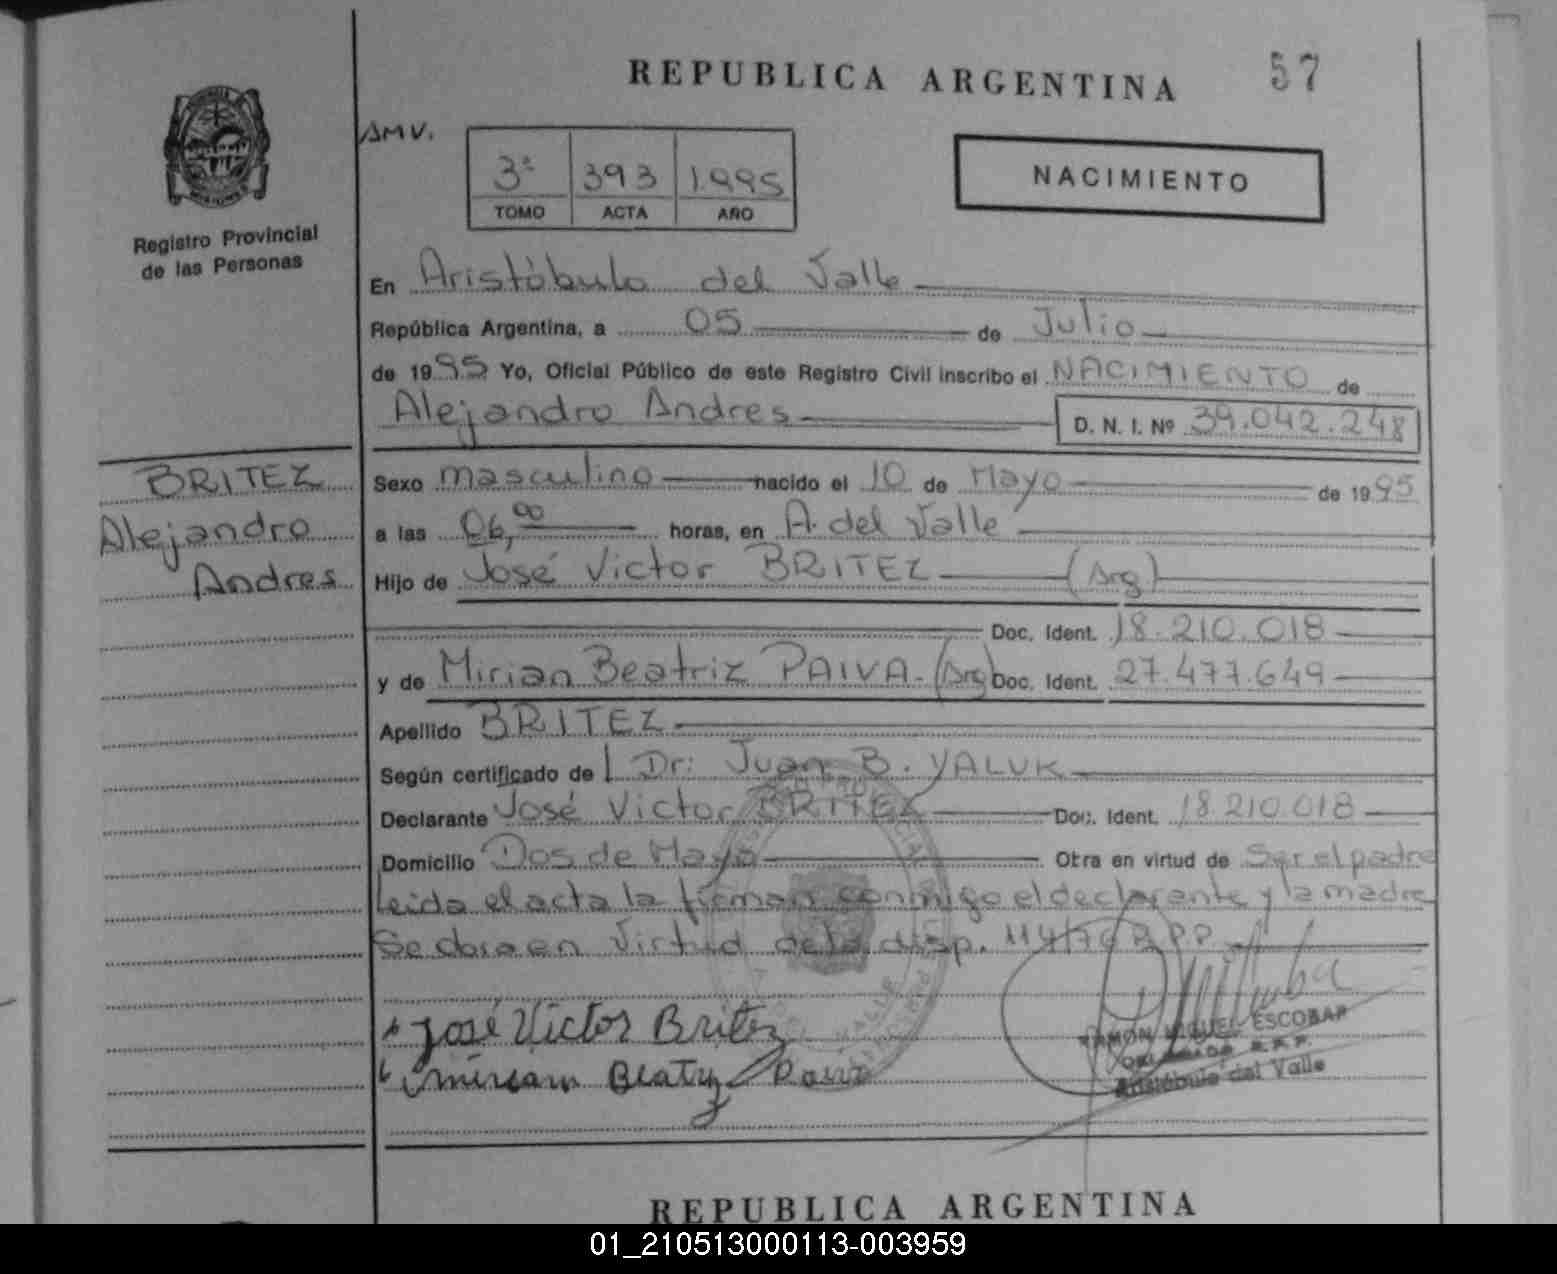 REPUBLICA ARGENTINA
57
AMV.
3ª 393 1.995
TOMO ACTA AÑO
NACIMIENTO
Registro Provincial
de las Personas
En Aristóbulo del Valle
República Argentina, a 05 de Julio
de 1995 Yo, Oficial Público de este Registro Civil inscribo el NACIMIENTO de
Alejandro Andres D. N. I. Nº 39.042.248
BRITEZ
Alejandro
Andres
Sexo masculino nacido el 10 de Mayo de 1995
a las 06,00 horas, en A. del Valle
Hijo de José Victor BRITEZ (Arg)
Doc. Ident. 18.210.018
y de Mirian Beatriz PAIVA. (Arg) Doc. Ident. 27.477.649
Apellido BRITEZ
Según certificado de l Dr: Juan B. YALUK
Declarante José Victor BRITEZ Doc. Ident. 18.210.018
Domicilio Dos de Mayo Otra en virtud de Ser el padre
Leida el acta la firman conmigo el declarante y la madre
Se obra en Virtud de la disp. 114/76 R.P.P.
José Victor Britez
miriam Beatriz Paiva
RAMON MIGUEL ESCOBAR
R.P.P.
Aristóbulo del Valle
REPUBLICA ARGENTINA
01_210513000113-003959